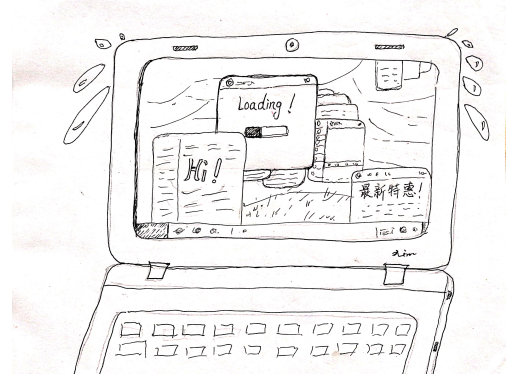 Loading!
Hi!
最新特惠!